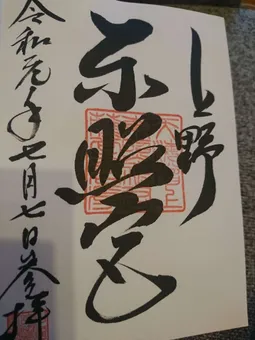 上野
東照宮
令和元年七月七日参拝